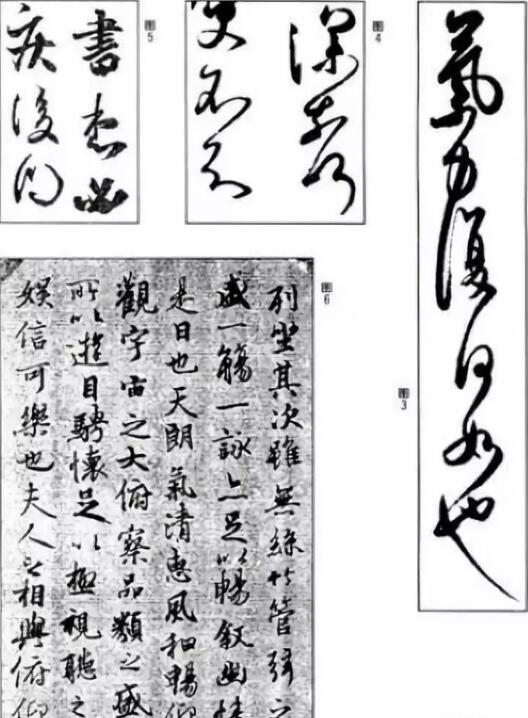 图5
書想必
图4
图3
氣力復何如也
图6
列坐其次雖無絲竹管弦之
盛一觴一詠亦足以暢敘幽情
是日也天朗氣清惠風和暢仰
觀宇宙之大俯察品類之盛
所以遊目騁懷足以極視聽之
娛信可樂也夫人之相與俯仰